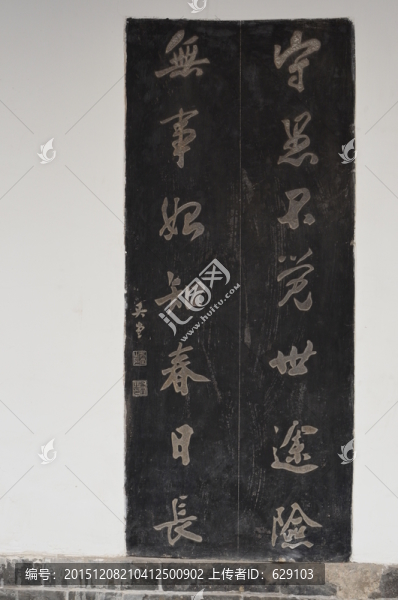 守愚不觉世途險
無事始知春日長
汇图网
www.huitu.com
编号：20151208210412500902 上传者ID：629103